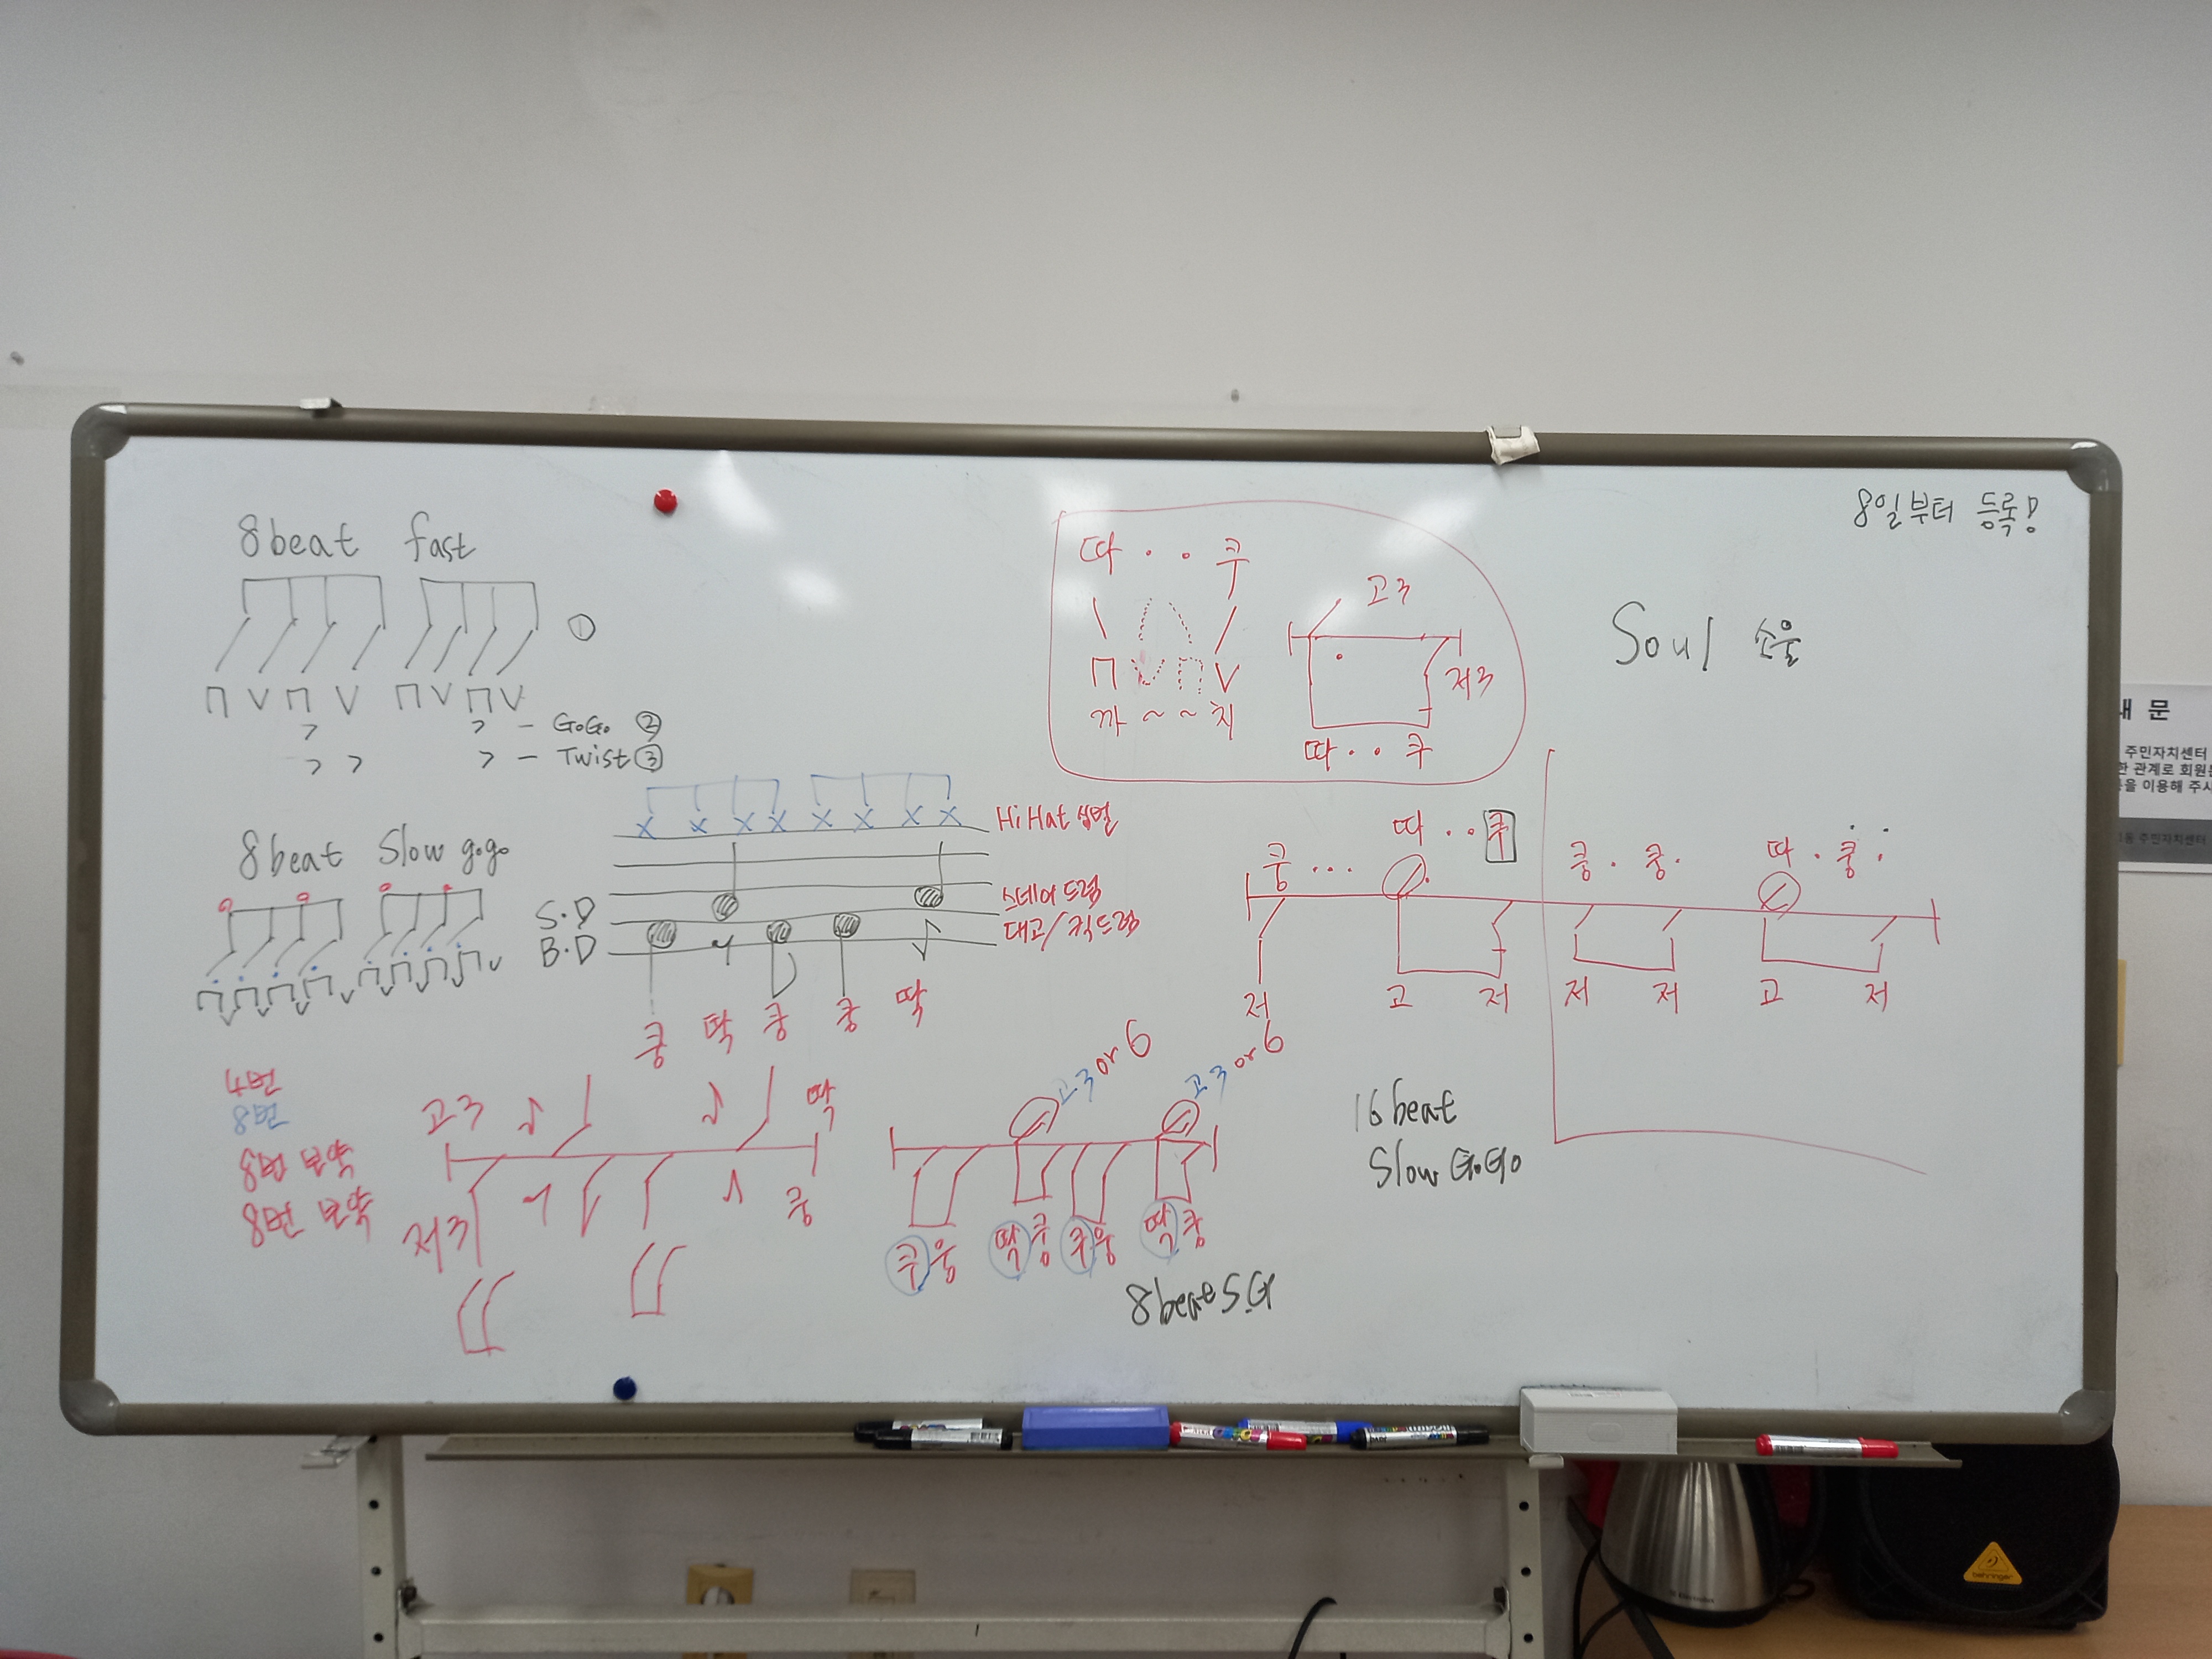 8일부터 등록!
8beat fast
①
ㄇ V ㄇ V ㄇ V ㄇ V
> > - GoGo ②
> > > - Twist ③
따 · · 쿠
ㄇ V ㄇ V
까 ~ ~ 치
고3
저3
따 · · 쿠
Soul 소울
내 문
주민자치센터
한 관계로 회원
을 이용해 주시
주민자치센터
8beat Slow gogo
HiHat 심벌
S.D
스네어 드럼
B.D
대고/킥드럼
쿵 딱 쿵 쿵 딱
쿵 ··· 따 ·· 쿠 쿵 · 쿵 · 따 · 쿵 ·
저 고 저 저 저 고 저
4번
8번
8번 보약
8번 보약
고3
딱
저3
쿵
고3 or 6 고3 or 6
쿠웅 딱쿵 쿠웅 딱쿵
8beat S.G
16beat
Slow GoGo
behringer